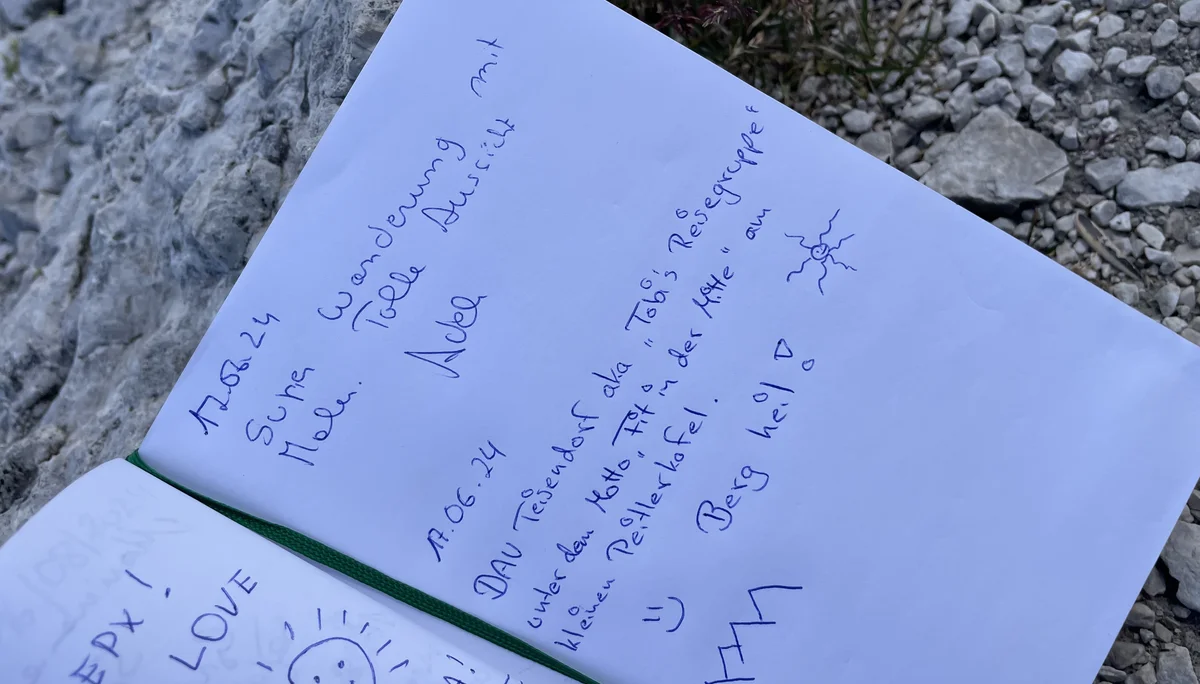 17.06.24
Super Wanderung mit
Tolle Aussicht
17.06.24
DAV Teisendorf aka "Tobi's Reisegruppe"
unter dem Motto "Fit in der Mitte" am
kleinen Peitlerkofel.
:) Berg heil!
EPX!
LOVE